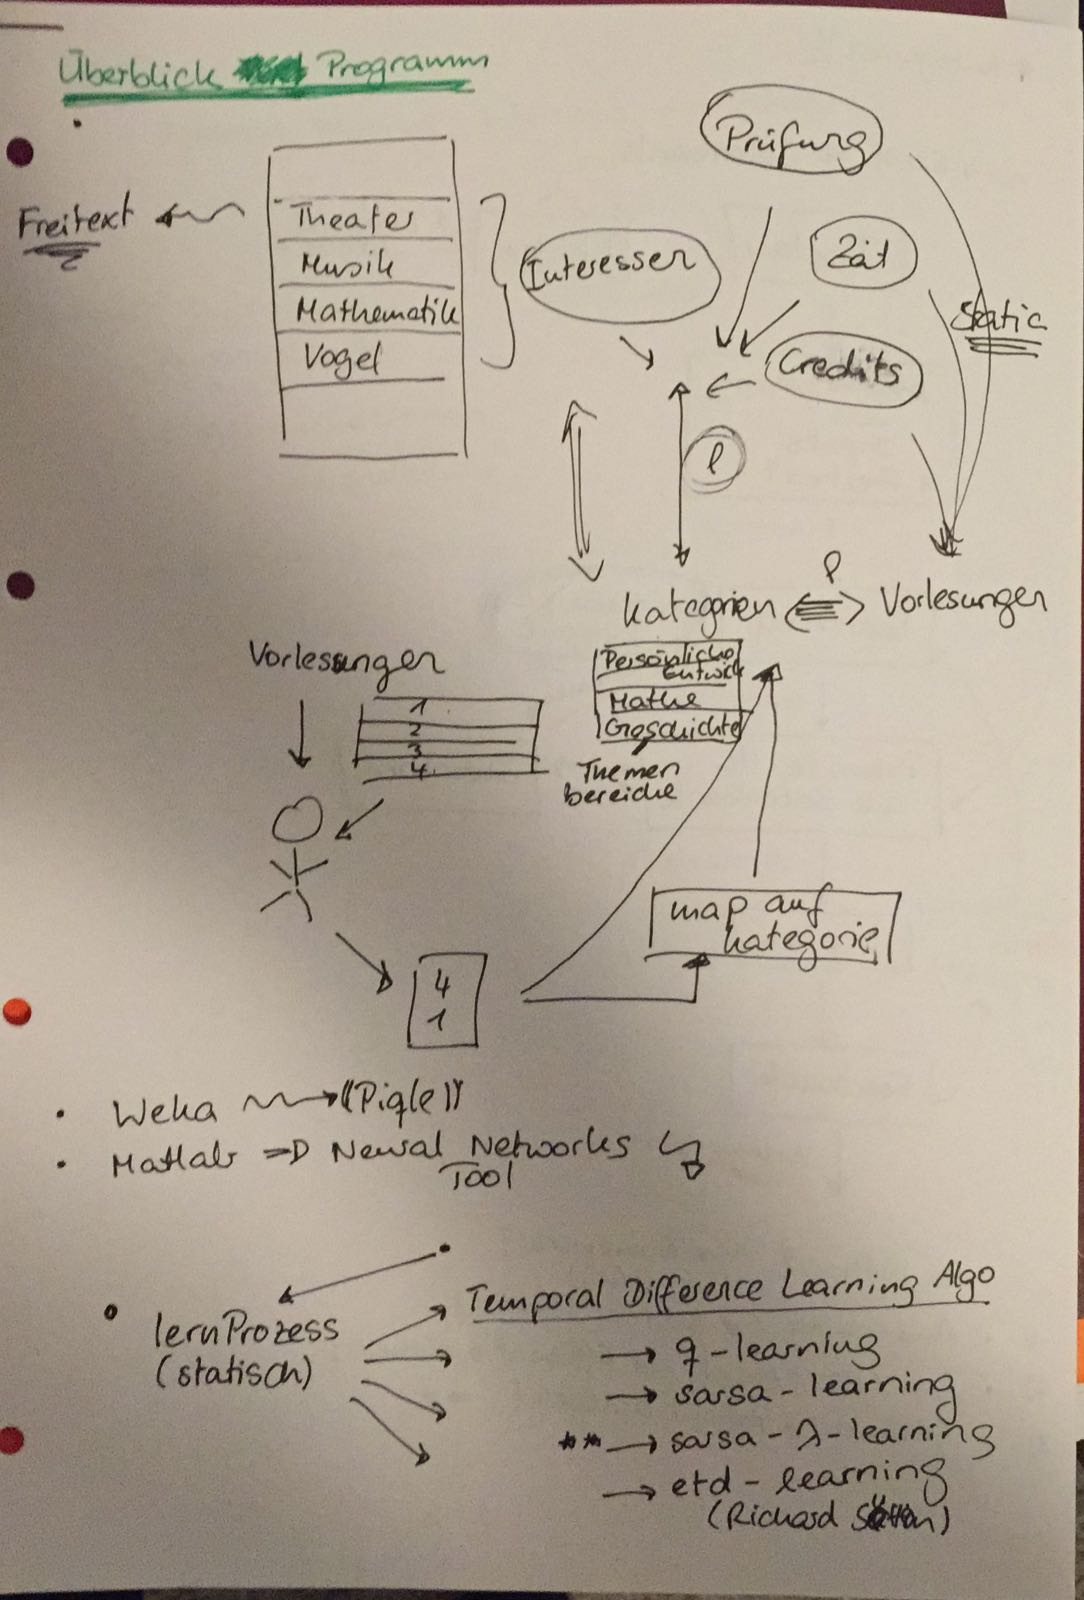 Überblick Programm
Prüfung
Freitext
Theater
Musik
Mathematik
Vogel
Interessen
Zeit
Static
Credits
l
Kategorien
P
Vorlesungen
Persönliche
Entwick
Mathe
Geschichte
Themen
bereiche
Vorlesungen
1
2
3
4
map auf
kategorie
4
1
• Weka → ((Piqle))
• Matlab => Neural Networks
Tool
lernProzess
(statisch)
Temporal Difference Learning Algo
→ q-learning
→ sarsa-learning
** → sarsa-λ-learning
→ etd-learning
(Richard Sutton)